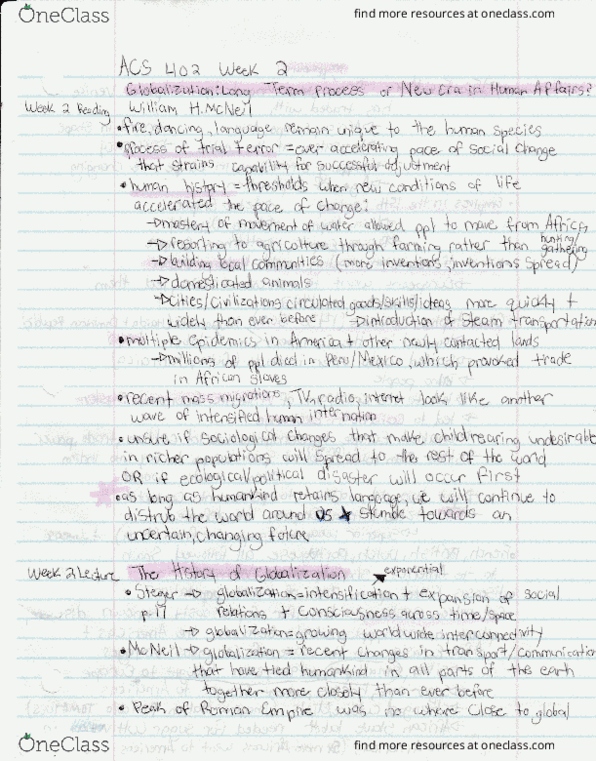 OneClass
find more resources at oneclass.com
ACS 402 Week 2
Globalization: Long Term Process or New Era in Human Affairs?
Week 2 Reading
William H. McNeil
• fire, dancing, language remain unique to the human species
• process of trial + error = ever accelerating pace of social change
that strains capability for successful adjustment
• human history = thresholds when new conditions of life
accelerated the pace of change:
→ mastery of movement of water allowed ppl to move from Africa
→ resorting to agriculture through farming rather than hunting/gathering
→ building local communities (more inventions, inventions spread)
→ domesticated animals
→ cities/civilizations circulated goods/skills/ideas more quickly +
widely than ever before → introduction of steam transportation
• multiple epidemics in America + other newly contacted lands
→ millions of ppl died in Peru/Mexico, which provoked trade
in African slaves
• recent mass migrations, TV, radio, internet look like another
wave of intensified human internation
• unsure if sociological changes that make childrearing undesirable
in richer populations will spread to the rest of the world
OR if ecological/political disaster will occur first
• as long as humankind retains language, we will continue to
distrub the world around us + stumble towards an
uncertain, changing future
Week 2 Lecture
The History of Globalization
exponential
• Steger → globalization = intensification + expansion of social
p.17 relations + consciousness across time/space
→ globalization = growing worldwide interconnectivity
• McNeil → globalization = recent changes in transport/communication
that have tied humankind in all parts of the earth
together more closely than ever before
• Peak of Roman Empire was no where close to global
OneClass
find more resources at oneclass.com